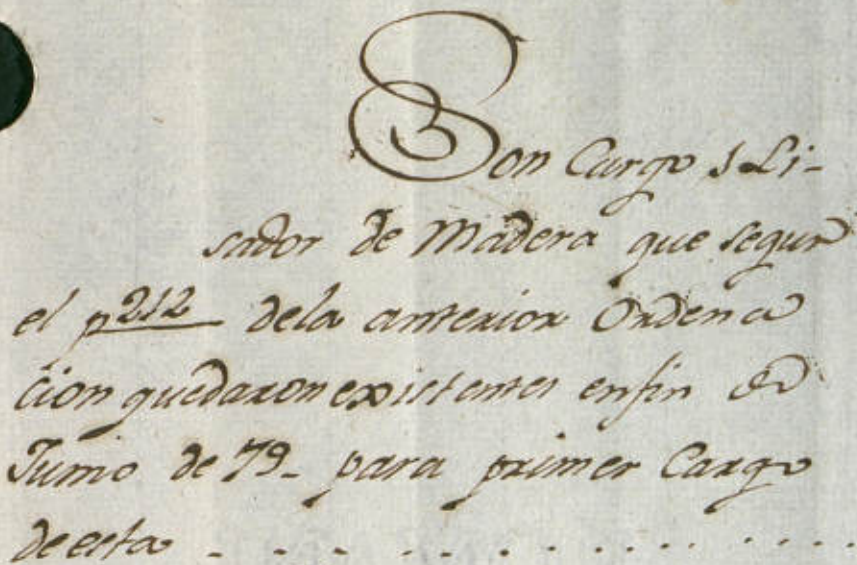 Son Cargo 1 Li-
sador de Madera que segun
el p 212 dela anterior Ordena
cion quedaron existentes enfin de
Junio de 79- para primer Cargo
deesta - - - - - - - - - - - -